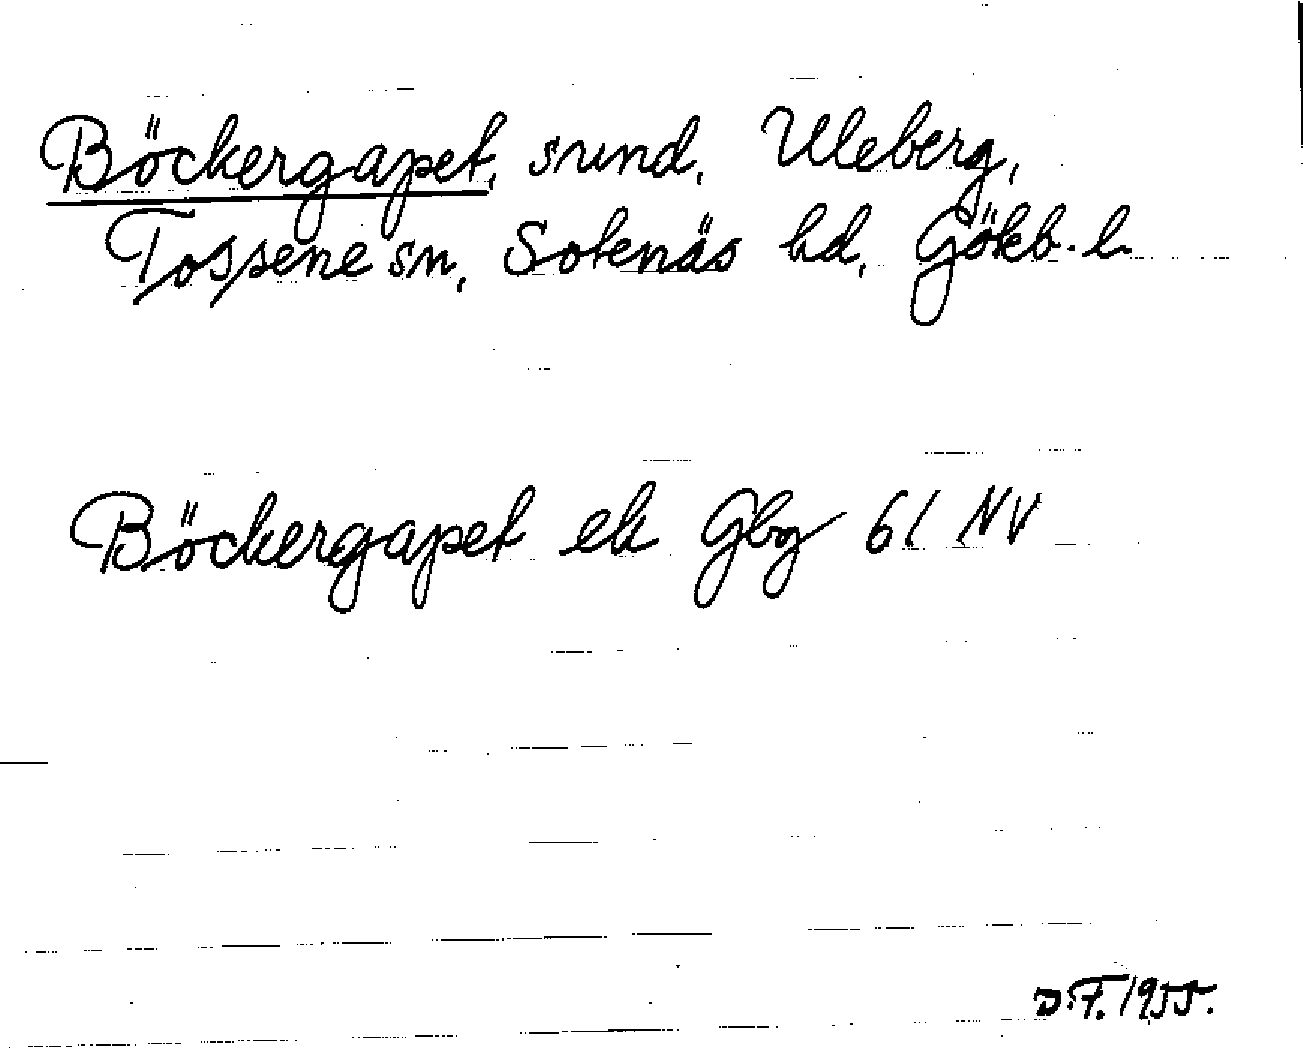 Böckergapet, sund, Uleberg,
Tossene sn, Sotenäs hd, Gökb. l.
Böckergapet ek Gbg 61 NV
D.F. 1955.